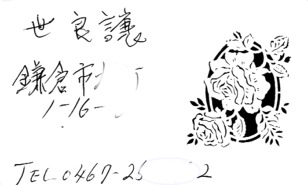 世良譲
鎌倉市
1-16-
TEL 0467-25 2